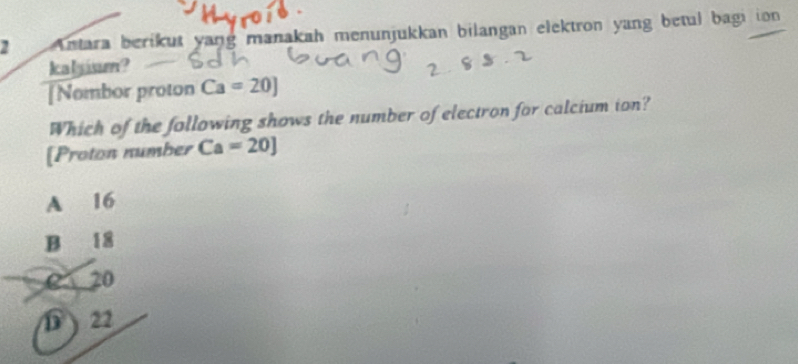 Thyroid.
2 Antara berikut yang manakah menunjukkan bilangan elektron yang betul bagi ion
kalsium? — sdh buang 2.8 8.2
[Nombor proton Ca = 20]
Which of the following shows the number of electron for calcium ion?
[Proton number Ca = 20]
A 16
B 18
C 20
D 22